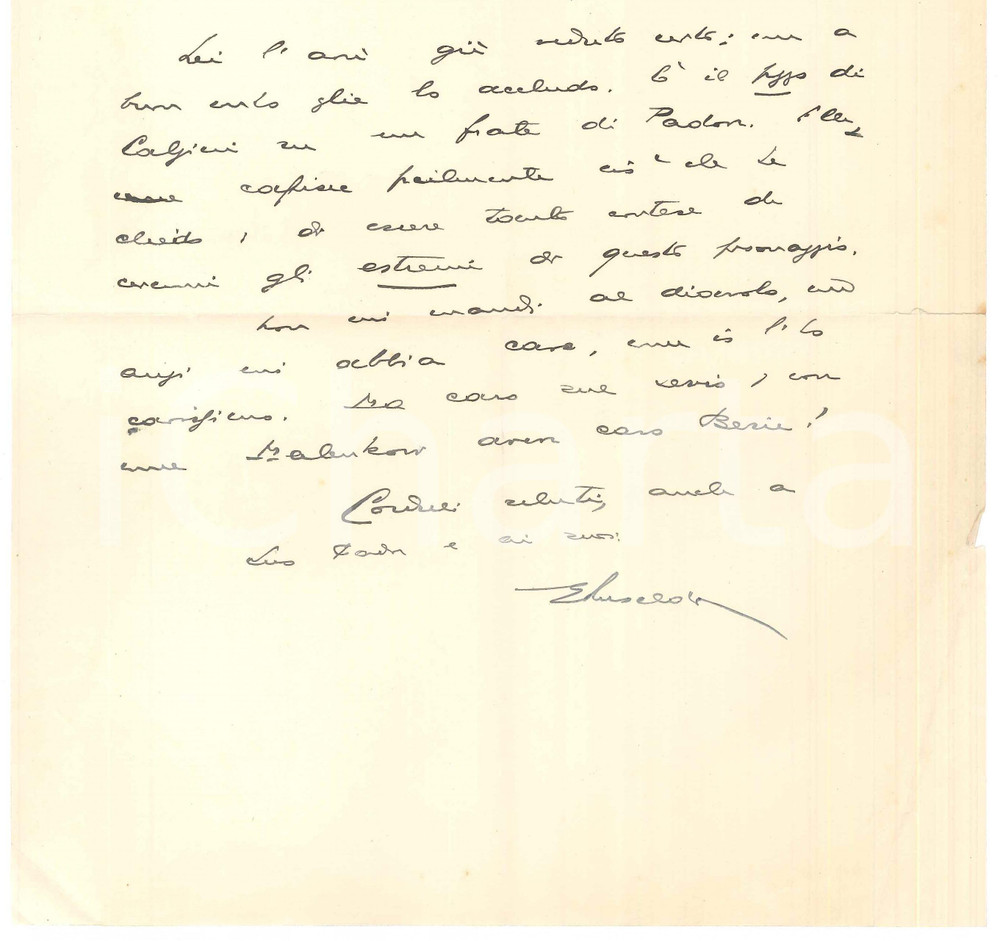 Lei l'avrà già veduto certo; ma a
buon conto glie lo accludo. È il pezzo di
Calzini su un frate di Padova. Ella
capisce facilmente ciò che Le
chiedo, di essere tanto cortese da
cercarmi gli estremi di questo personaggio.
Non mi mandi al diavolo, ma
anzi mi abbia caro, come io l'ho
carissimo. Ma caro sul serio, non
come Malenkow aveva caro Beria!
Cordiali saluti, anche a
Suo Padre e ai suoi